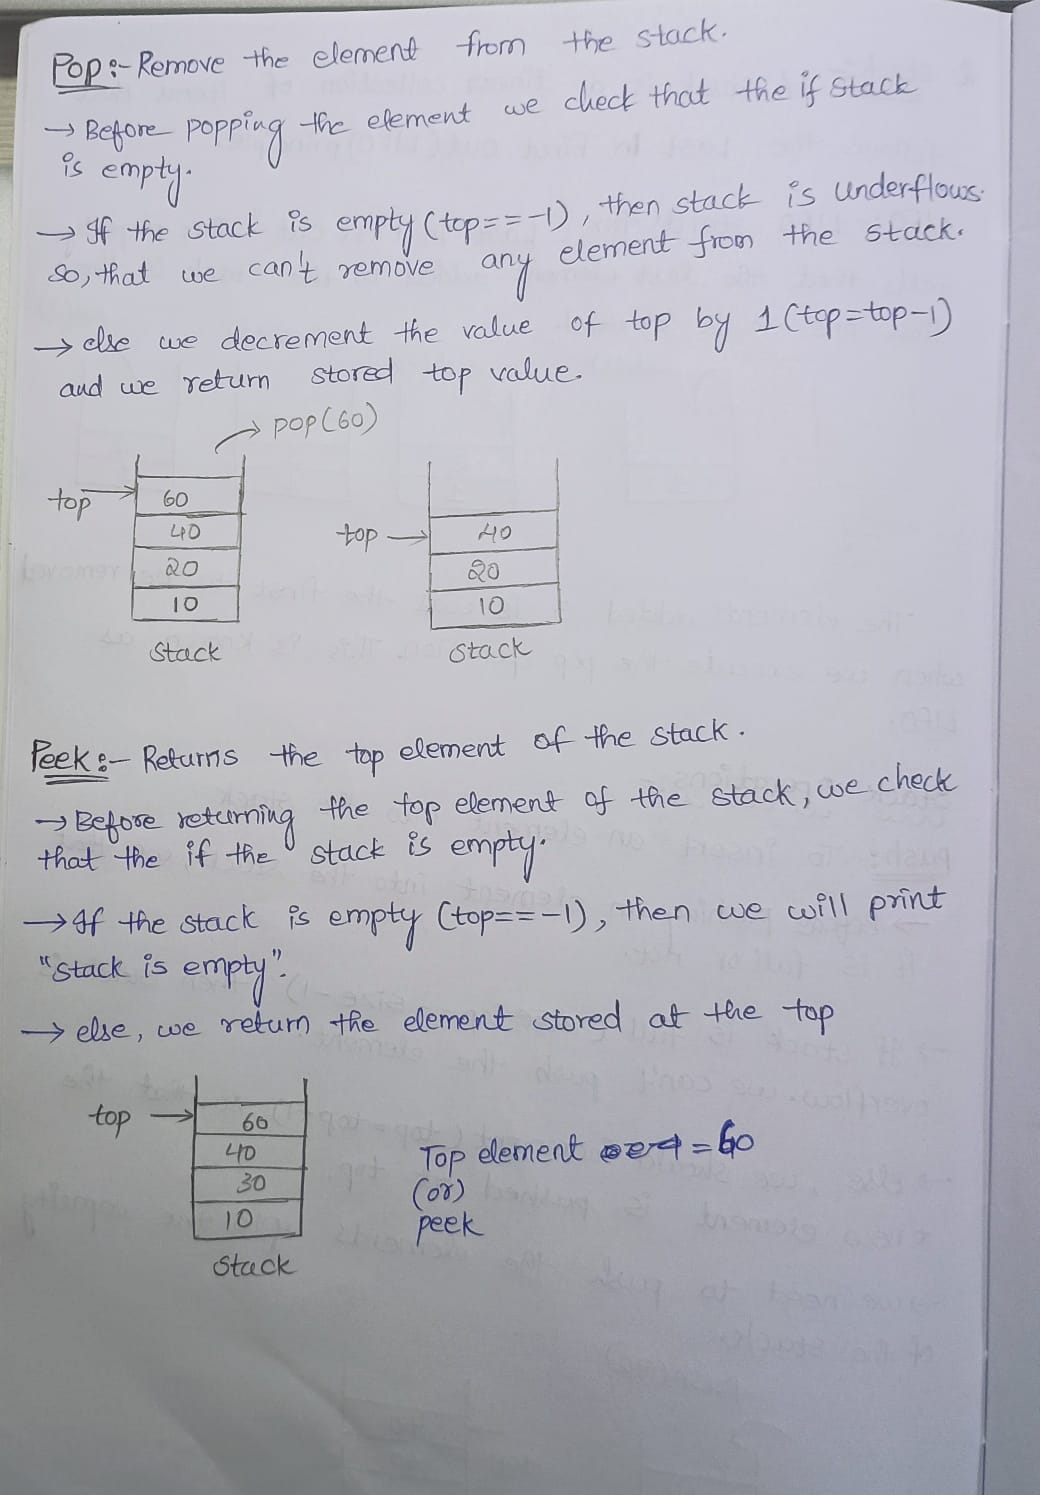 Pop :- Remove the element from the stack.
→ Before popping the element we check that the if stack
is empty.
→ If the stack is empty (top == -1), then stack is underflows.
so, that we can't remove any element from the stack.
→ else we decrement the value of top by 1 (top=top-1)
and we return stored top value.
→ pop(60)
top → 60
40
20
10
stack
top → 40
20
10
stack
Peek :- Returns the top element of the stack.
→ Before returning the top element of the stack, we check
that the if the stack is empty.
→ If the stack is empty (top == -1), then we will print
"stack is empty".
→ else, we return the element stored at the top
top → 60
40
30
10
stack
Top element = 60
(or)
peek